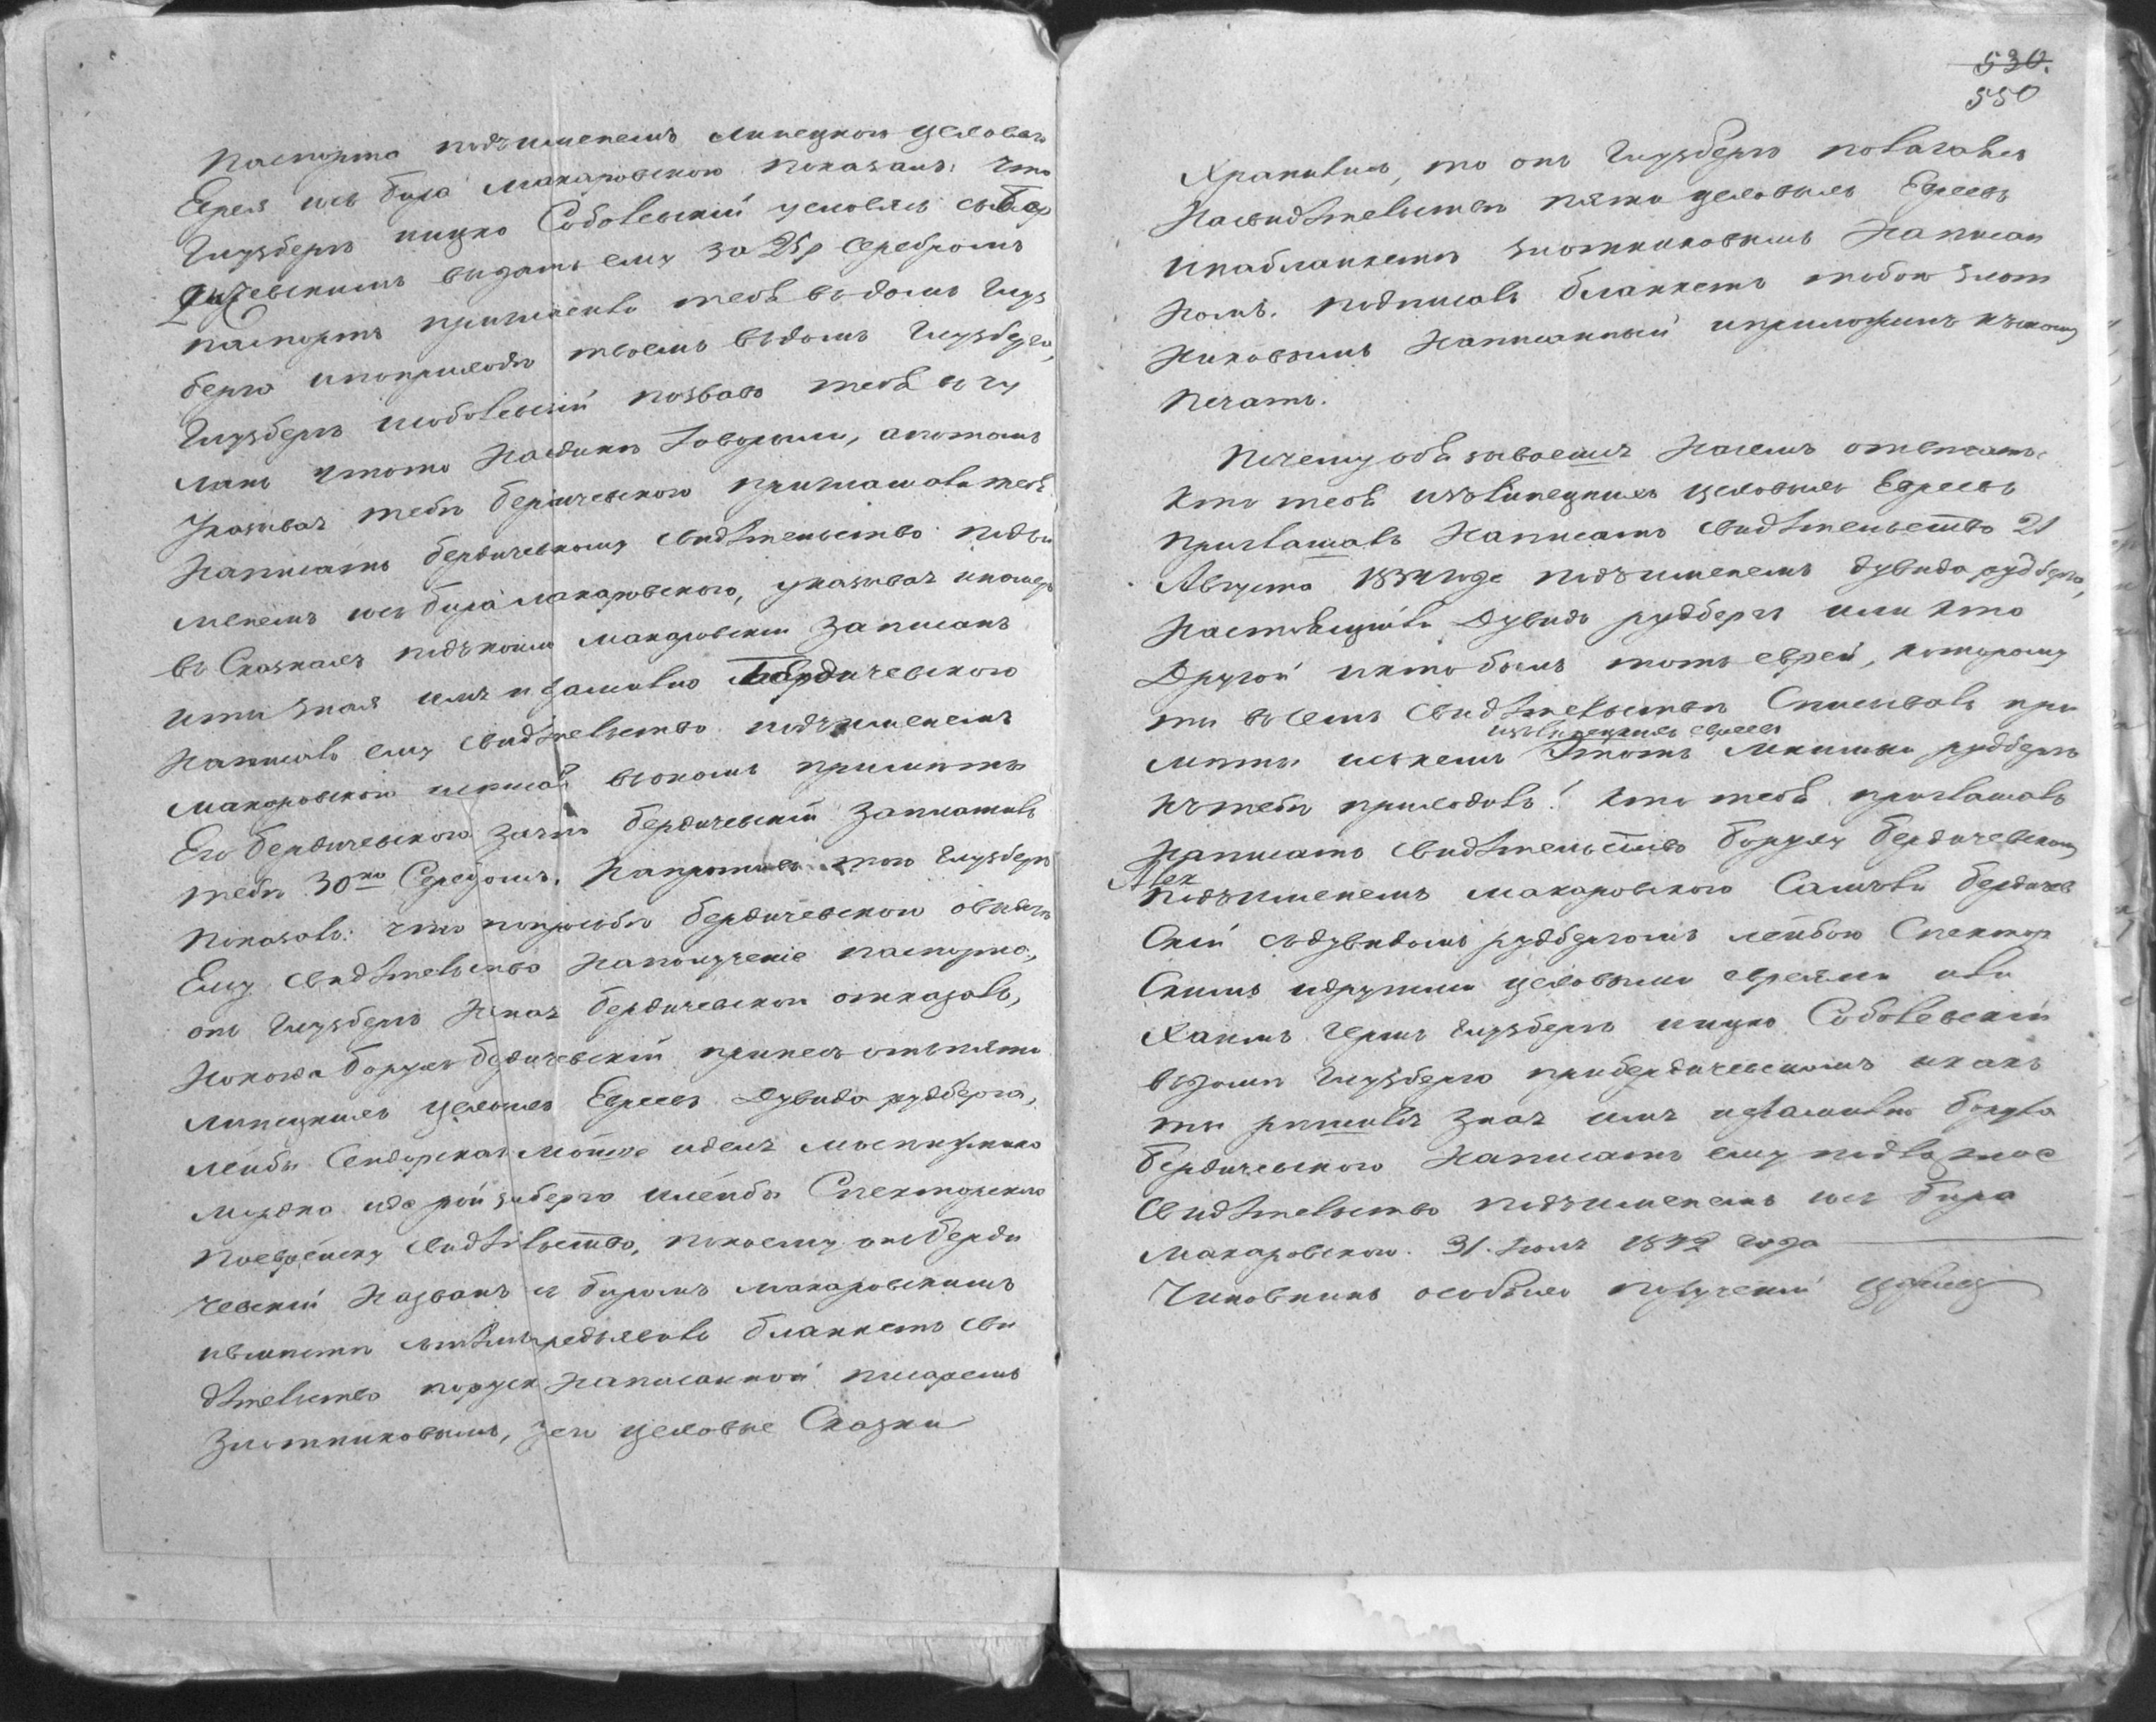 Паспорта подъименемъ Липецкого цеховаго
Еврея Іосъ Бира Макаровского показалъ: что
Гинзбергъ Ицко Соболевскій условясь съ Бер
дичевскимъ выдать ему за 25р серебромъ
паспортъ пригласило тебя въ домъ Гинз
берга ипоприходѣ твоемъ въ домъ Гинзберга,
Гинзбергъ и Соболевскій позвавъ тебя въ чу
ланъ что то наединѣ говорили, а потомъ
указывая тебѣ Бердичевского приглашали тебя
написать Бердичевскому свидѣтельство подъ и
менемъ Іосъ Бира Макаровского, указывая иномеръ
въ Сказкахъ подъ коимъ Макаровскій записанъ
и ты зная имя и фамилію Бердичевского
написалъ ему свидѣтельство подъ именемъ
Макаровского и описалъ въ ономъ примѣты
Его Бердичевского за что Бердичевскій заплатилъ
тебѣ 30 ко Серебромъ. Напротивъ того Гинзбергъ
показалъ: что попросьбѣ Бердичевского о выдачѣ
Ему свидѣтельства наполученіе паспорта,
онъ Гинзбергъ незная Бердичевского отказалъ,
Но когда Борухъ Бердичевскій принесъ отъ пяти
Липецкихъ цеховыхъ Евреевъ Дувида Рудберга,
Лейбы Сендерская Мошка
и Лейбы Спекторского
поеврейску свидѣтельство, по коему онъ Берди
чевскій названъ Іосъ Биромъ Макаровскимъ
и вмѣстѣ съ тѣмъ предъявилъ бланкетъ сви
дѣтельства порусски написанной писаремъ
Злотниковымъ, у его цеховые Сказки
530.
550
хранились, то онъ Гинзбергъ полагаясь
на свидѣтельство пяти цеховыхъ Евреевъ
и на бланкетъ Злотниковымъ написан
номъ. подписалъ бланкетъ тобою Злот
никовымъ написанный и приложилъ къ нему
печать.
Почему обязываешся на семъ отвѣчать:
кто тебя изъ Липецкихъ цеховыхъ Евреевъ
приглашалъ написать свидѣтельство 21
Августа 1834 года подъ именемъ Дувида Рудберга,
настоящій ли Дувидъ Рудбергъ или кто
другой и кто былъ тотъ еврей, которому
ты въ семъ свидѣтельствѣ списывалъ при
изъ Липецкихъ евреевъ
мѣты и съ кемъ этотъ мнимый Рудбергъ
къ тебѣ приходилъ! кто тебя приглашалъ
написать свидѣтельство Боруху Бердичевскому
подъ именемъ Макаровского Самъ ли Бердичев
скій съ Дувидомъ Рудбергомъ Лейбою Спектор
скимъ и другими цеховыми евреями или
Хаимъ Гершъ Гинзбергъ и Ицко Соболевскій
въ домѣ Гинзберга при Бердичевскомъ и какъ
ты рѣшился зная имя и фамилію Боруха
Бердичевского написать ему подложное
свидѣтельство подъ именемъ Іосъ Бира
Макаровского. 31. Іюля 1842 года
Чиновникъ особыхъ порученій